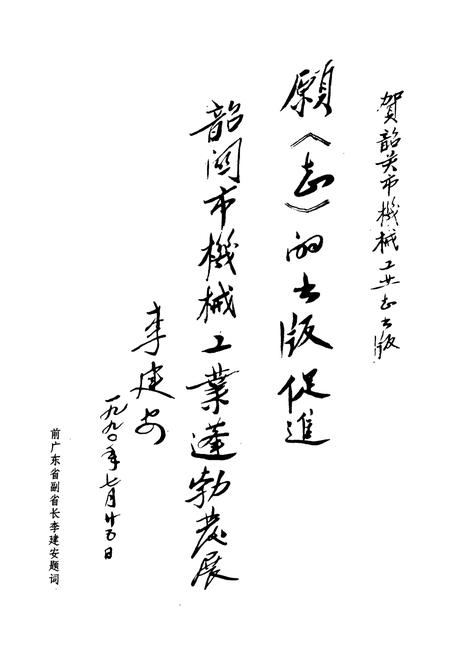 賀韶关市機械工业志出版
願《志》的出版促進
韶関市機械工業蓬勃發展
李建安
一九九〇年七月廿五日
前广东省副省长李建安题词